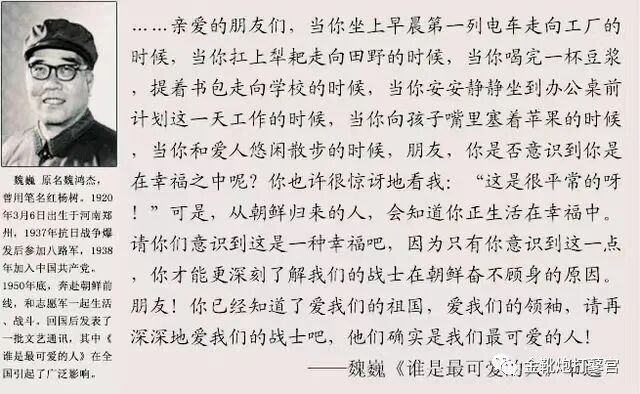 ……亲爱的朋友们，当你坐上早晨第一列电车走向工厂的
时候，当你扛上犁耙走向田野的时候，当你喝完一杯豆浆
，提着书包走向学校的时候，当你安安静静坐到办公桌前
计划这一天工作的时候，当你向孩子嘴里塞着苹果的时候
，当你和爱人悠闲散步的时候，朋友，你是否意识到你是
在幸福之中呢？你也许很惊讶地看我：“这是很平常的呀
！”可是，从朝鲜归来的人，会知道你正生活在幸福中。
请你们意识到这是一种幸福吧，因为只有你意识到这一点
，你才能更深刻了解我们的战士在朝鲜奋不顾身的原因。
朋友！你已经知道了爱我们的祖国，爱我们的领袖，请再
深深地爱我们的战士吧，他们确实是我们最可爱的人！
——魏巍《谁是最可爱的人》
魏巍 原名魏鸿杰，
曾用笔名红杨树。1920
年3月6日出生于河南郑
州，1937年抗日战争爆
发后参加八路军，1938
年加入中国共产党。
1950年底，奔赴朝鲜前
线，和志愿军一起生活
、战斗。回国后发表了
一批文艺通讯，其中《
谁是最可爱的人》在全
国引起了广泛影响。
金靴炮打警官